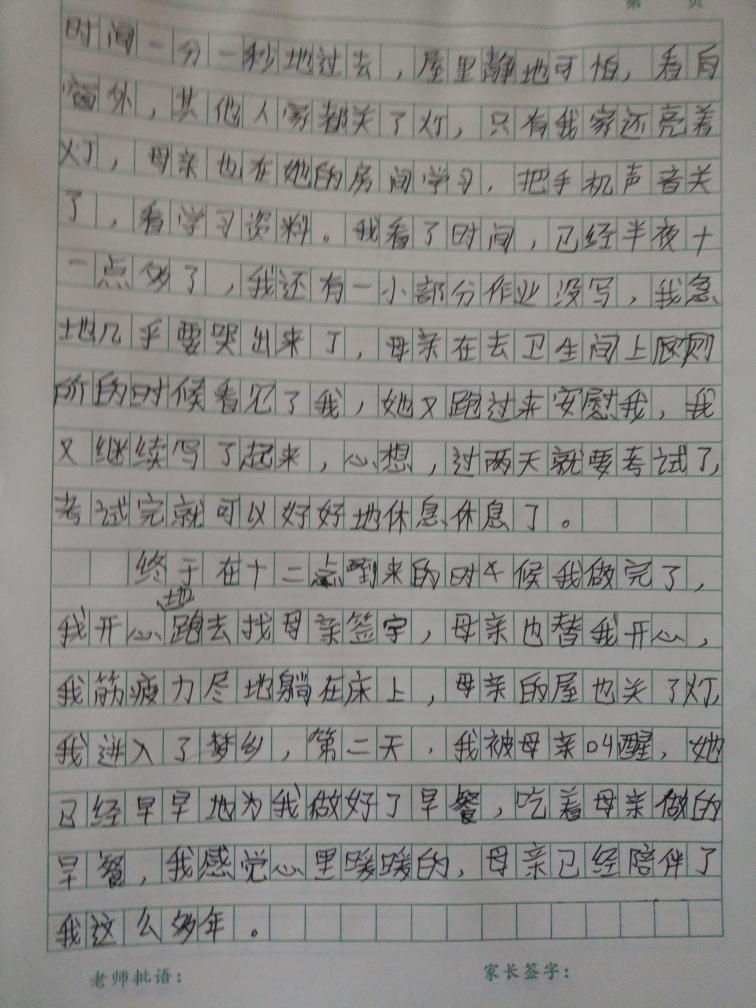 第 页
时间一分一秒地过去，屋里静地可怕，看向
窗外，其他人家都关了灯，只有我家还亮着
灯，母亲也在她的房间学习，把手机声音关
了，看学习资料。我看了时间，已经半夜十
一点多了，我还有一小部分作业没写，我急
地几乎要哭出来了，母亲在去卫生间上厕
所的时候看见了我，她又跑过来安慰我，我
又继续写了起来，心想，过两天就要考试了，
考试完就可以好好地休息休息了。
终于在十二点到来的时候我做完了，
我开心地跑去找母亲签字，母亲也替我开心，
我筋疲力尽地躺在床上，母亲的屋也关了灯，
我进入了梦乡，第二天，我被母亲叫醒，她
已经早早地为我做好了早餐，吃着母亲做的
早餐，我感觉心里暖暖的，母亲已经陪伴了
我这么多年。
老师批语： 家长签字：